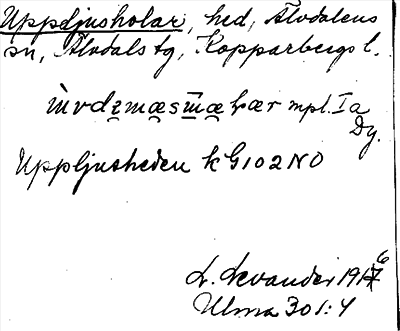 Uppljusholar, hed, Älvdalens
sn, Älvdals tg, Kopparbergs l.
mpl. Ia
Dy.
Uppljusheden k G102NO
L. Levander 1916
Ulma 301:4